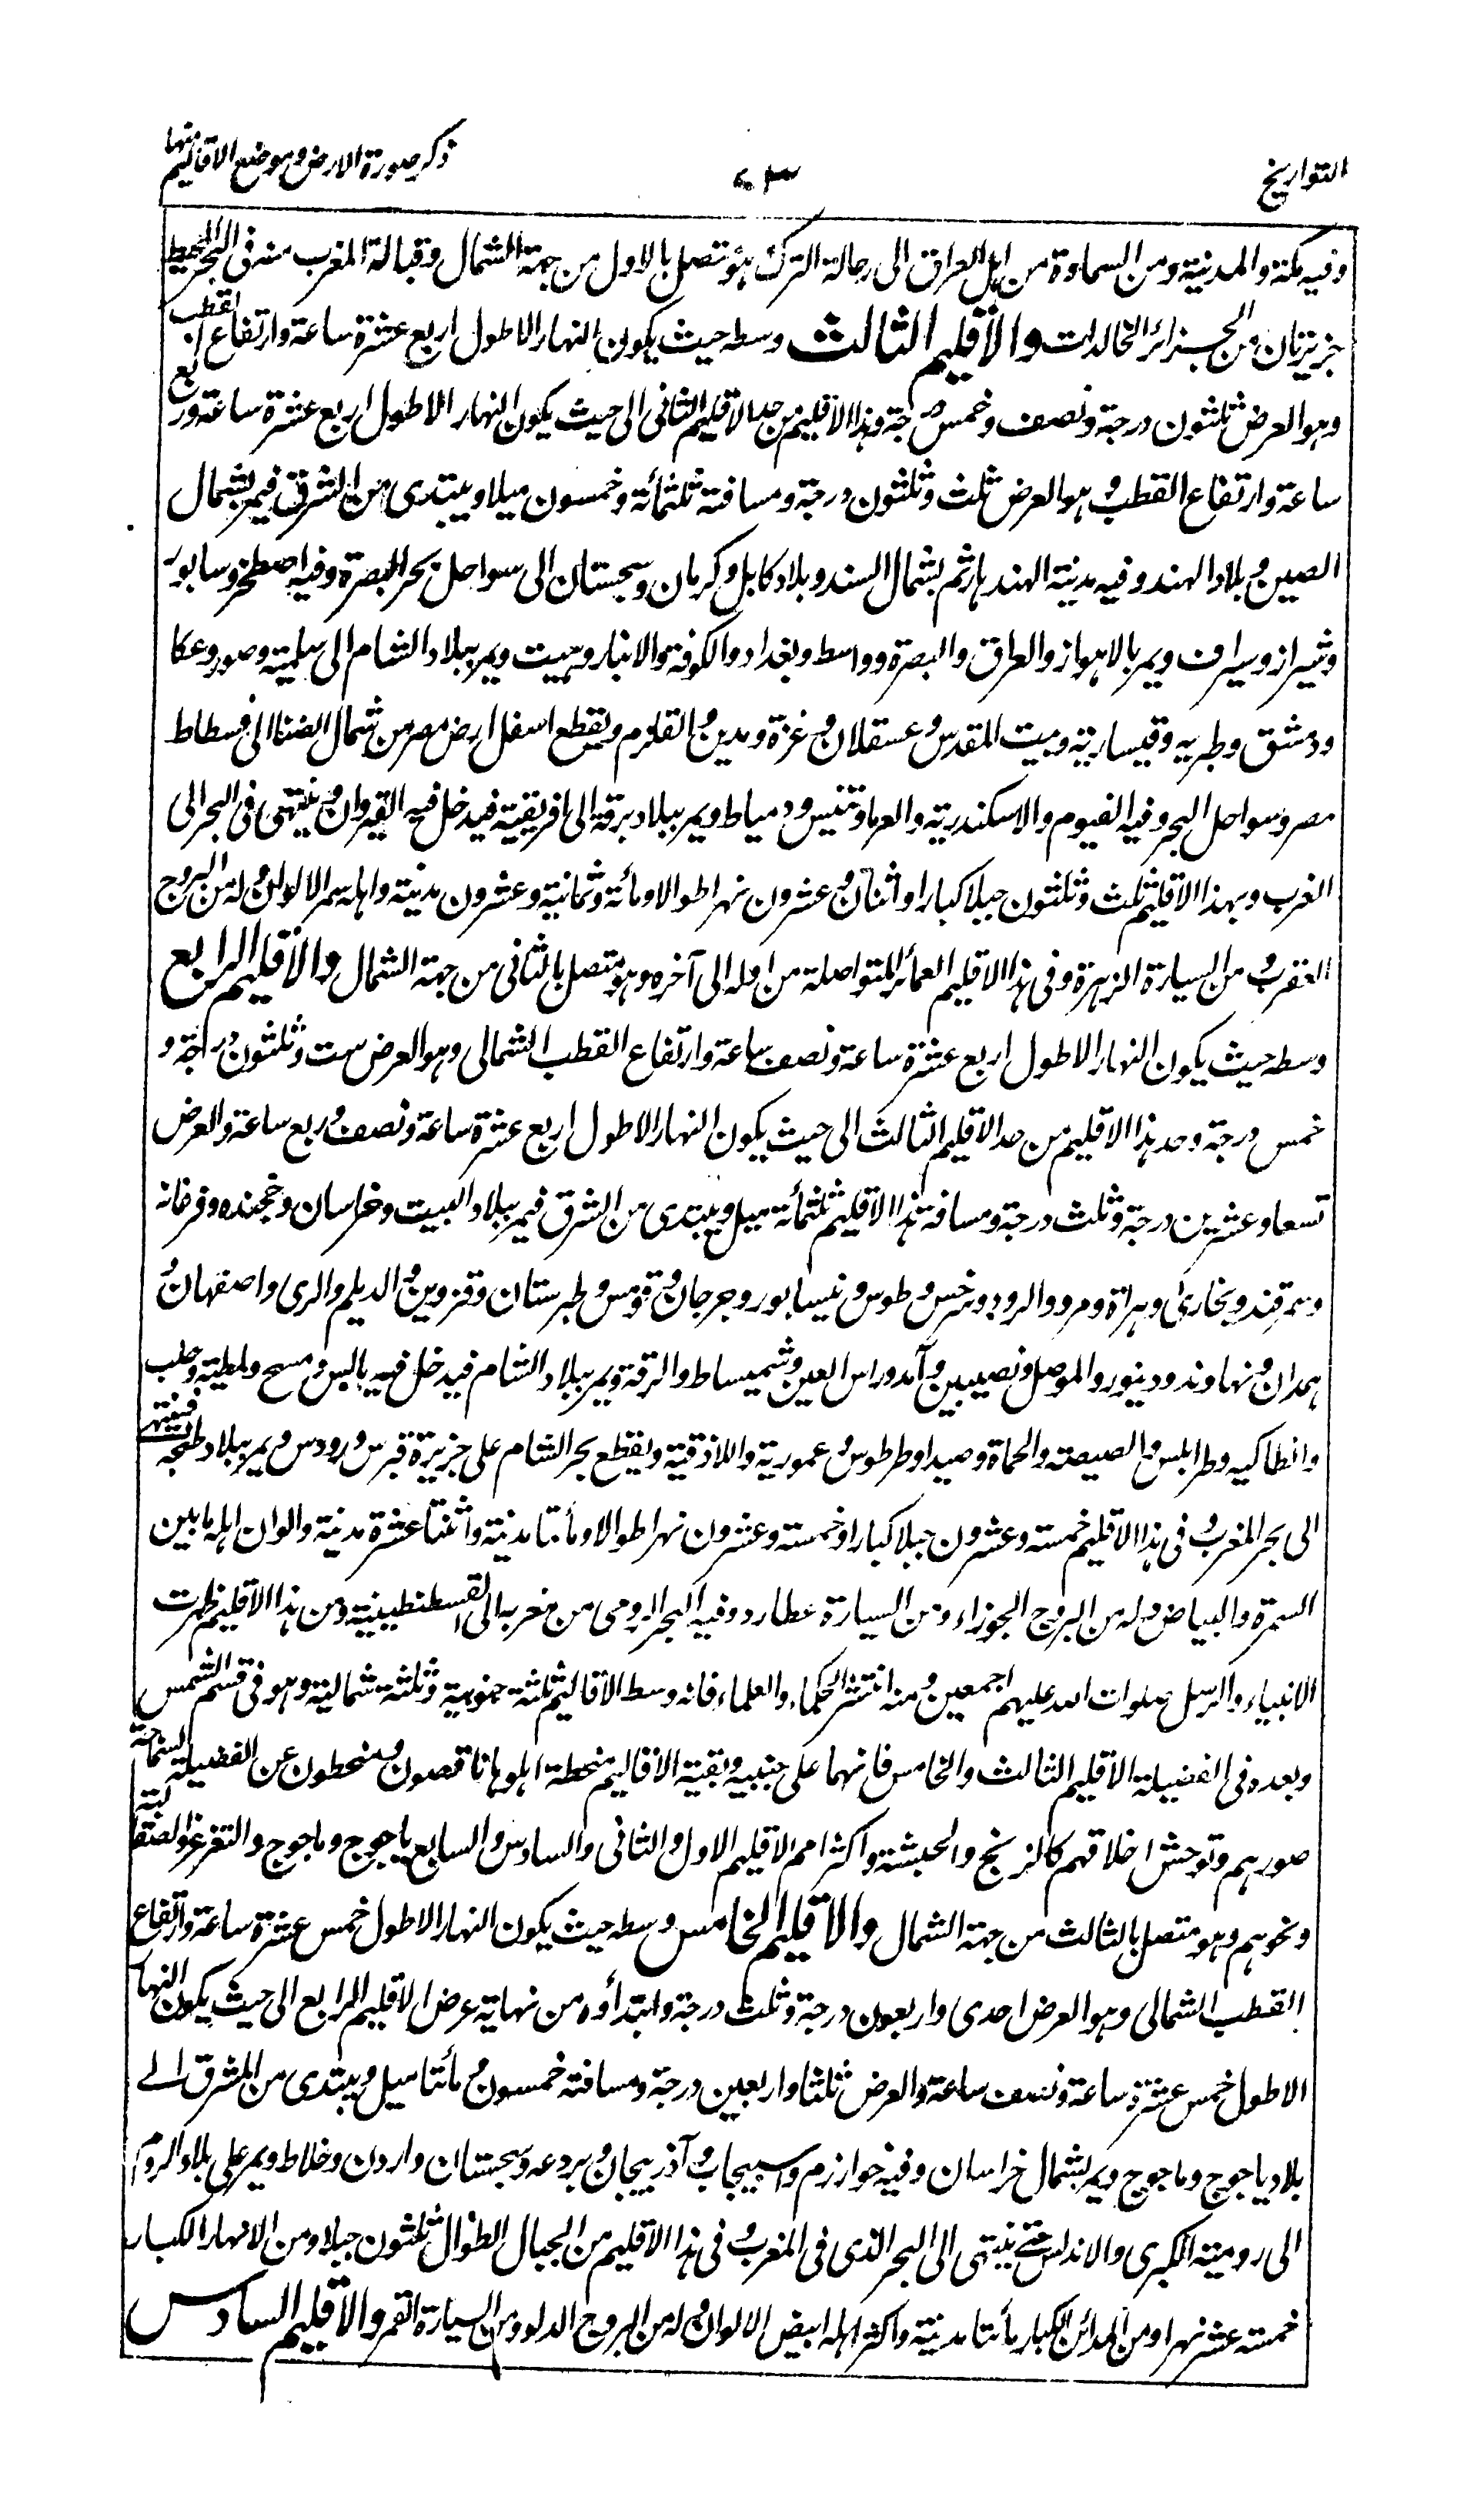 التواريخ
٤٣
ذكر صورة الارض وموضع الاقاليم منها
وفيه مكة والمدنية ومن السماوة من اهل العراق الى رحالة الترك هو متصل بالاول من جهة الشمال وقبالة المغرب منه فى البحر المحيط
جزيرتان من الجزائر الخالدات والاقليم الثالث وسطه حيث يكون النهار الاطول اربع عشرة ساعة وارتفاع القطب
وهو العرض ثلثون درجة ونصف وخمس درجة وهذا الاقليم من حد الاقليم الثانى الى حيث يكون النهار الاطول اربع عشرة ساعة وربع
ساعة وارتفاع القطب وهو العرض ثلث وثلثون درجة ومسافته ثلثمائة وخمسون ميلا ويبتدى من الشرق فيمر بشمال
الصين وبلاد الهند وفيه مدينة الهند هار ثم بشمال السند وبلاد كابل وكرمان وسجستان الى سواحل بحر البصرة وفيه اصطخر وسابور
وشيراز وسيراف ويمر بالاهواز والعراق والبصرة وواسط وبغداد والكوفة والانبار وهيت ويمر ببلاد الشام الى سلمية وصور وعكا
ودمشق وطبريه وقيسارية وبيت المقدس وعسقلان وغزة ومدين والقلزم ويقطع اسفل ارض مصر من شمال انصنا الى فسطاط
مصر وسواحل البحر وفيه الفيوم والاسكندرية والعرما وتنيس ودمياط ويمر ببلاد برقة الى افريقية فيدخل فيه القيروان وينتهى فى البحر الى
الغرب وبهذا الاقليم ثلث وثلثون جبلا كبارا واثنان وعشرون نهرا طوالا ومائة وثمانية وعشرون مدنية واهله سمر الالوان وله من البروج
العقرب ومن السيارة الزهرة وفى هذا الاقليم العمائر المتواصلة من اوله الى آخره وهو متصل بالثانى من جهة الشمال والاقليم الرابع
وسطه حيث يكون النهار الاطول اربع عشرة ساعة ونصف ساعة وارتفاع القطب الشمالى وهو العرض ست وثلثون درجة و
خمس درجة وحد هذا الاقليم من حد الاقليم الثالث الى حيث يكون النهار الاطول اربع عشرة ساعة ونصف وربع ساعة والعرض
تسعا وعشرين درجة وثلث درجة ومسافة هذا الاقليم ثلثمائة ميل ويبتدى من الشرق فيمر ببلاد البيت وخراسان وخجنده وفرغانه
وسمرقند وبخارى وهراة ومرو والرود وسرخس وطوس ونيسابور وجرجان وقومس وطبرستان وقزوين والديلم والرى واصفهان و
همدان ونهاوند ودينور والموصل ونصيبين وآمد وراس العين وشميساط والرقة ويمر ببلاد الشام فيدخل فيه بالس ومسح وملطية وحلب
وانطاكيه وطرابلس والصيصة والحماة وصيدا وطرطوس وعمورية واللاذقية ويقطع بحر الشام على جزيرة قبرس ورودس ويمر ببلاد طنجه فينتهى
الى بحر المغرب وفى هذا الاقليم خمسة وعشرون جبلا كبارا وخمسة وعشرون نهرا طوالا ومأتا مدنية واثنتا عشرة مدنية والوان اهله ما بين
السمرة والبياض وله من البروج الجوزاء ومن السيارة عطارد وفيه البحر الرومى من مغربه الى القسطنطينية ومن هذا الاقليم ظهرت
الانبياء والرسل صلوات الله عليهم اجمعين ومنه انتشر الحكماء والعلماء فانه وسط الاقاليم ثلثة جنوبية وثلثة شمالية وهو فى قسم الشمس
وبعده فى الفضيلة الاقليم الثالث والخامس فانهما على جنبيه وبقية الاقاليم منحطة اهلوها ناقصون ومنحطون عن الفضيلة لسماجة
صورهم وتوحش اخلاقهم كالزنج والحبشة واكثر امم الاقليم الاول والثانى والسادس والسابع ياجوج وماجوج والتغرغر والصقالبة
ونحوهم وهو متصل بالثالث من جهة الشمال والاقليم الخامس وسطه حيث يكون النهار الاطول خمس عشرة ساعة وارتفاع
القطب الشمالى وهو العرض احدى واربعون درجة وثلث درجة وابتدأوه من نهاية عرض الاقليم الرابع الى حيث يكون النهار
الاطول خمس عشرة ساعة ونصف ساعة والعرض ثلثا واربعين درجة ومسافته خمسون ومأتا ميل ويبتدى من المشرق الے
بلاد ياجوج وماجوج ويمر بشمال خراسان وفيه خوارزم واسبيجاب وآذربيجان وبردعه وسجستان واردن وخلاط ويمر على بلاد الروم
الى رومية الكبرى والاندلس حتے ينتهى الى البحر الذى فى المغرب وفى هذا الاقليم من الجبال الطوال ثلثون جبلا ومن الانهار الكبار
خمسة عشر نهرا ومن المدائن الكبار مأتتا مدنية واكثر اهله ابيض الالوان وله من البروج الدلو ومن السيارة القمر والاقليم السادس